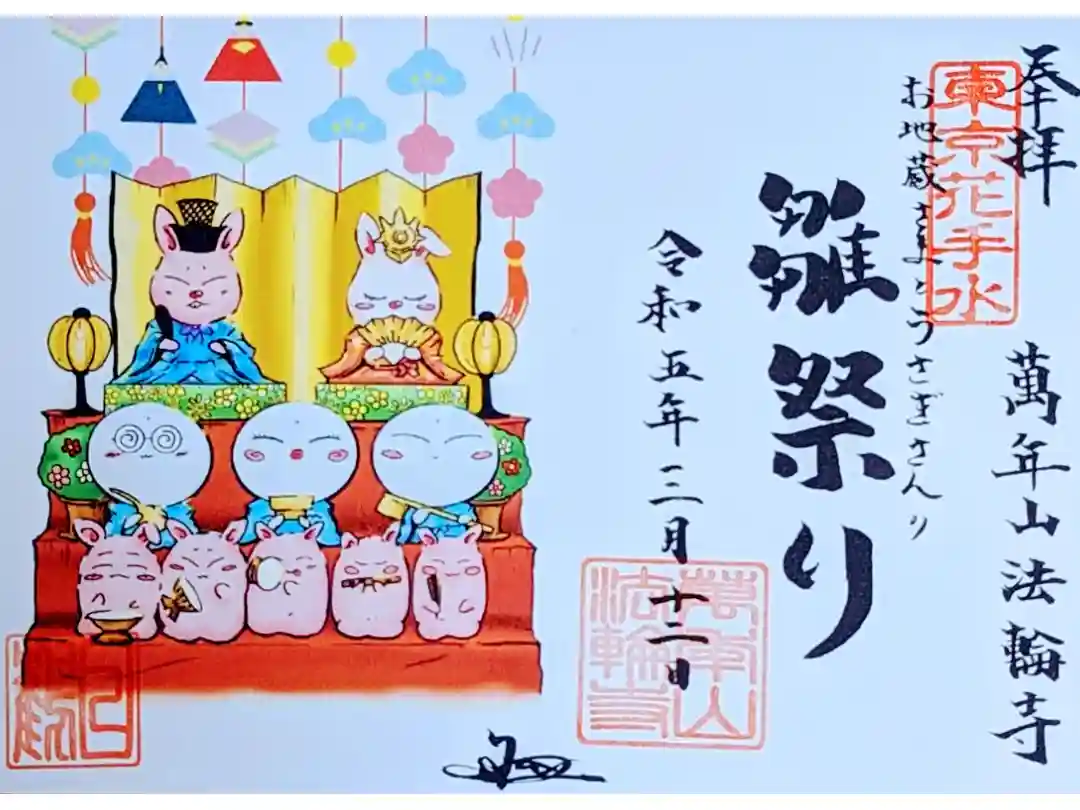 奉拝
東京花手水
萬年山法輪寺
お地蔵さまとうさぎさんの
雛祭り
令和五年三月十二日
萬年山
法輪寺